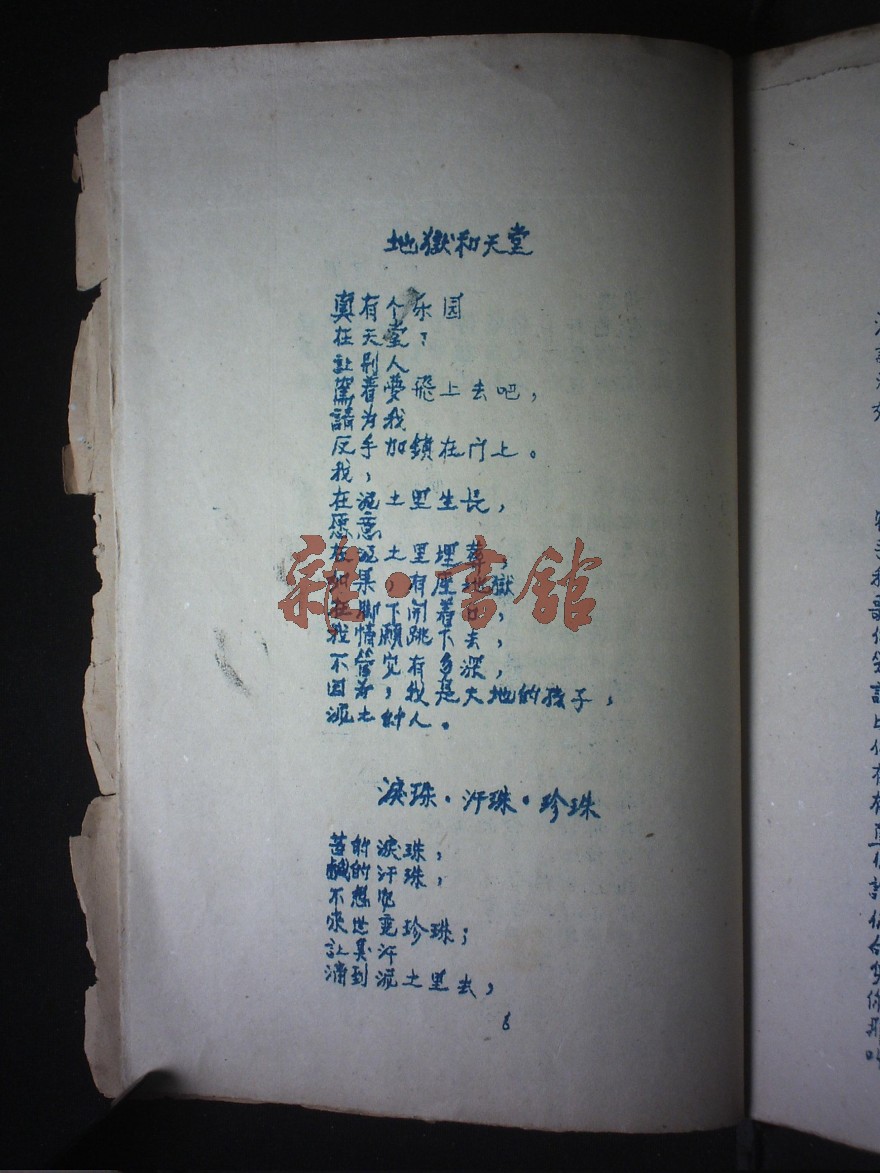 地獄和天堂
真有个乐园
在天堂?
让别人
駕着夢飛上去吧,
請为我
反手加鎖在门上。
我,
在泥土里生长,
愿意
在泥土里埋葬,
如果,有座地獄
在脚下开着口,
我情願跳下去,
不管它有多深,
因为,我是大地的孩子,
泥土的人。
淚珠·汗珠·珍珠
苦的淚珠,
鹹的汗珠,
不想它
来世变珍珠;
让臭汗
滴到泥土里去,
8
雜·書館